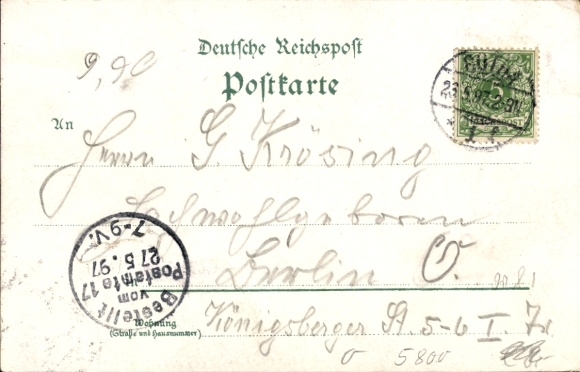 Deutsche Reichspost
9,90
Postkarte
5
REICHSPOST
An
Herrn G Krösing
Hochwohlgeboren
Berlin O.
Bestellt
vom
Postamte 17
27. 5. 97
7-9V.
Wohnung
(Straße und Hausnummer)
Königsberger St. 5-6 I.
5800